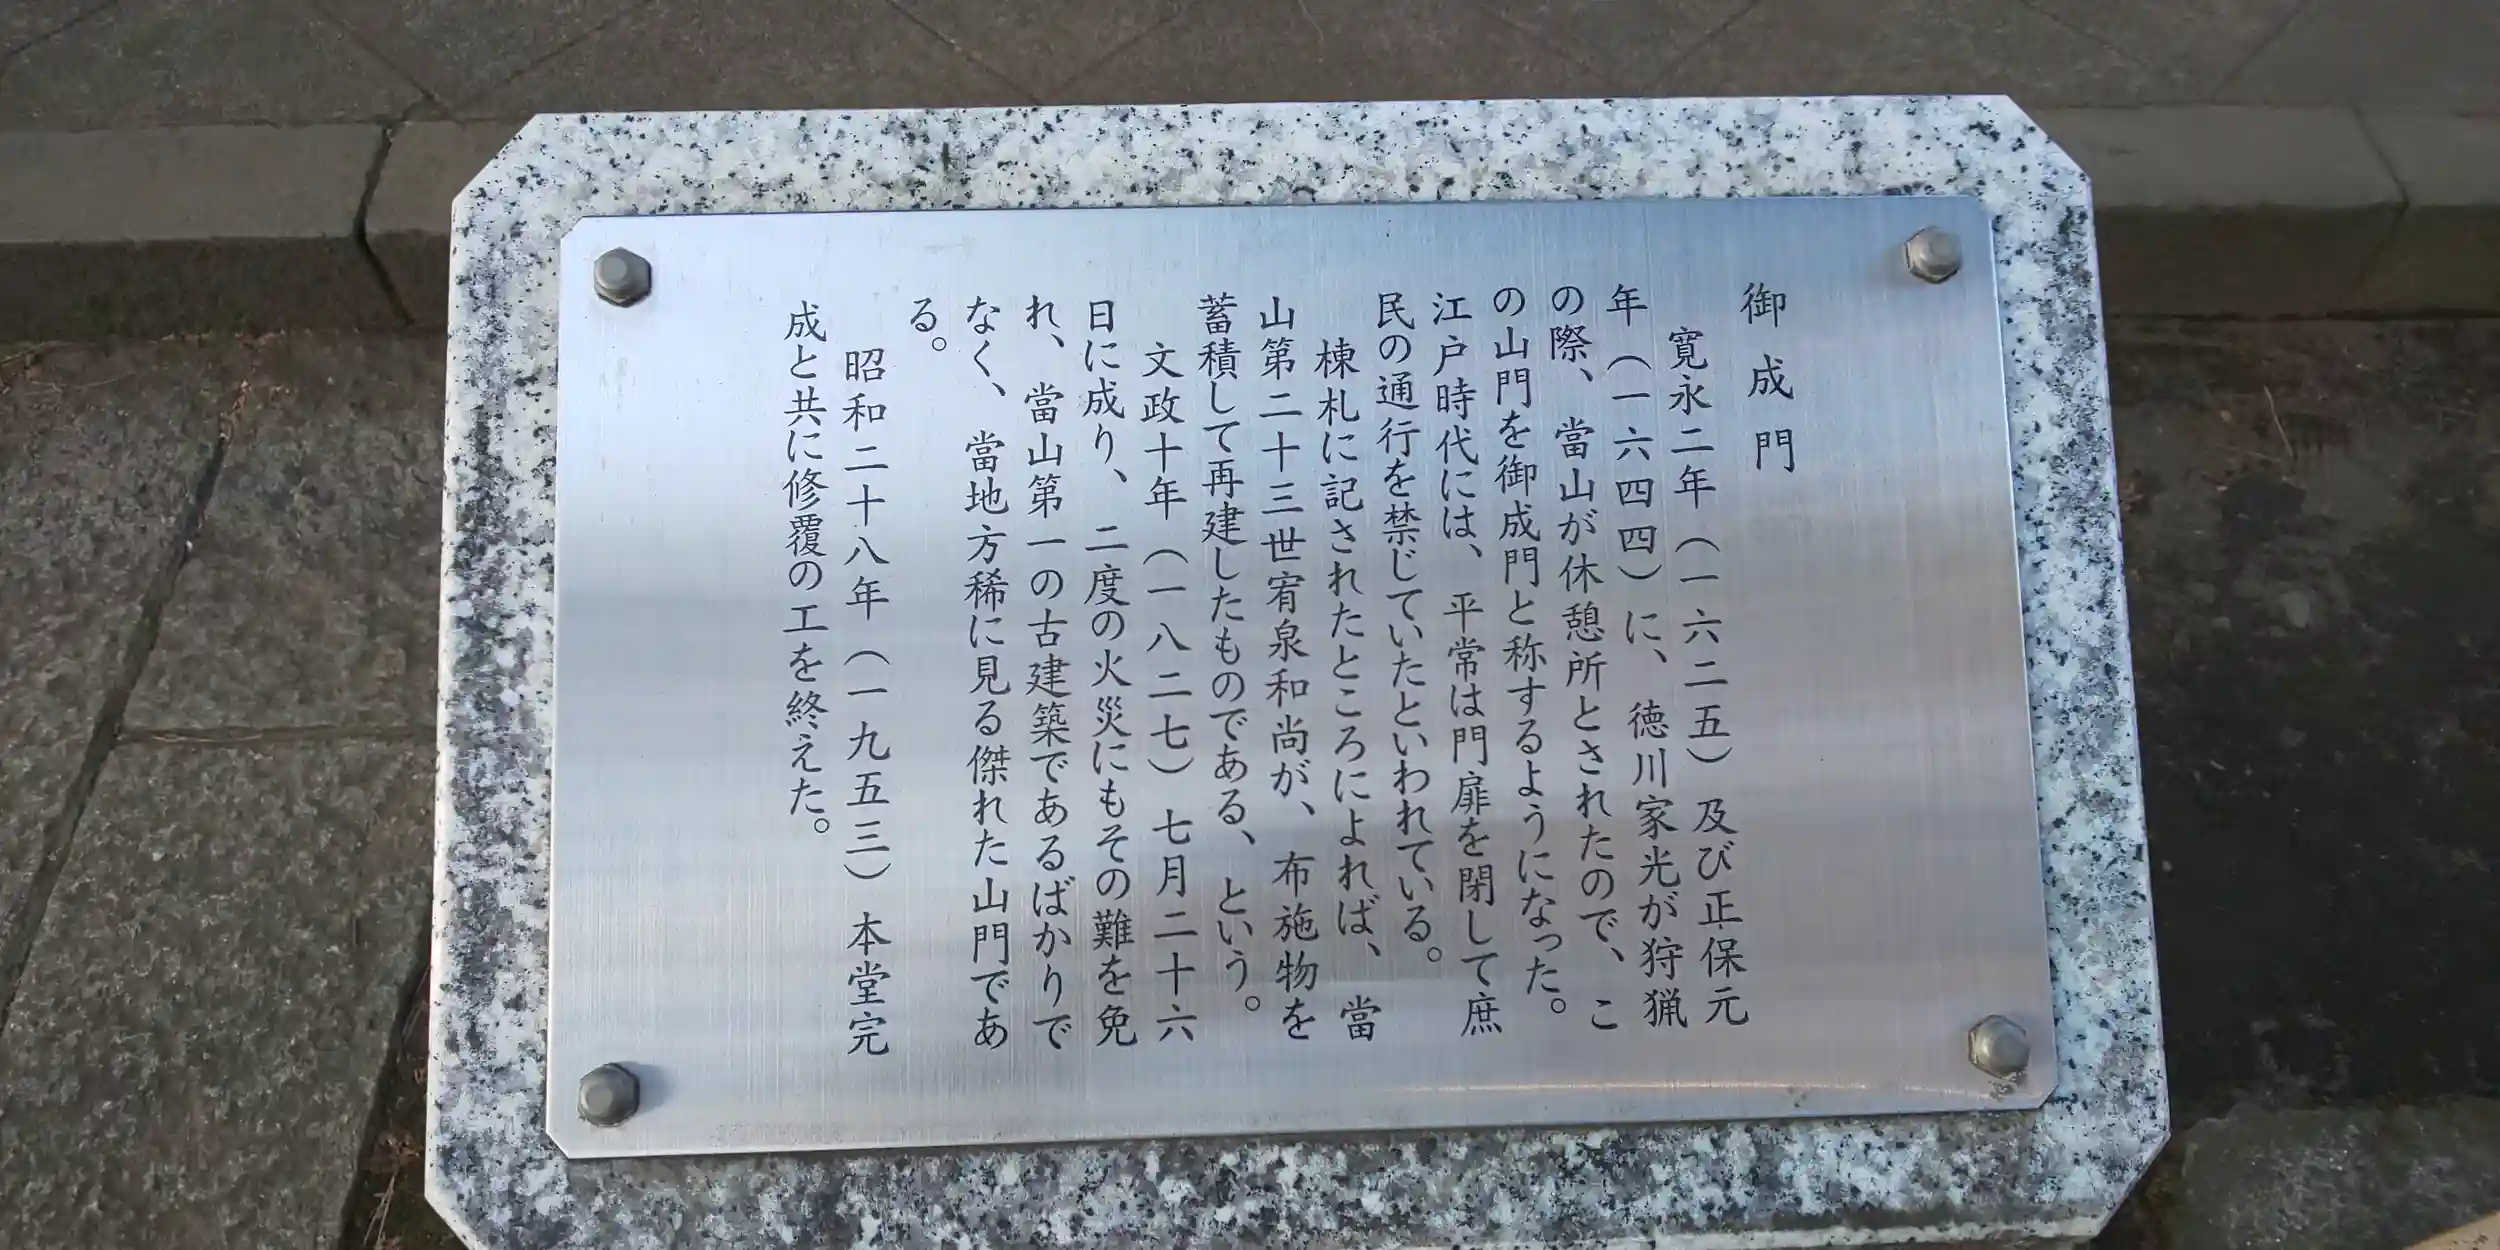 御成門
寛永二年（一六二五）及び正保元
年（一六四四）に、徳川家光が狩猟
の際、當山が休憩所とされたので、こ
の山門を御成門と称するようになった。
江戸時代には、平常は門扉を閉して庶
民の通行を禁じていたといわれている。
棟札に記されたところによれば、當
山第二十三世宥泉和尚が、布施物を
蓄積して再建したものである、という。
文政十年（一八二七）七月二十六
日に成り、二度の火災にもその難を免
れ、當山第一の古建築であるばかりで
なく、當地方稀に見る傑れた山門であ
る。
昭和二十八年（一九五三）本堂完
成と共に修覆の工を終えた。